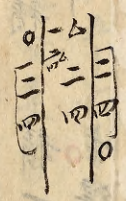 二四〇
△二四
一
〇三四